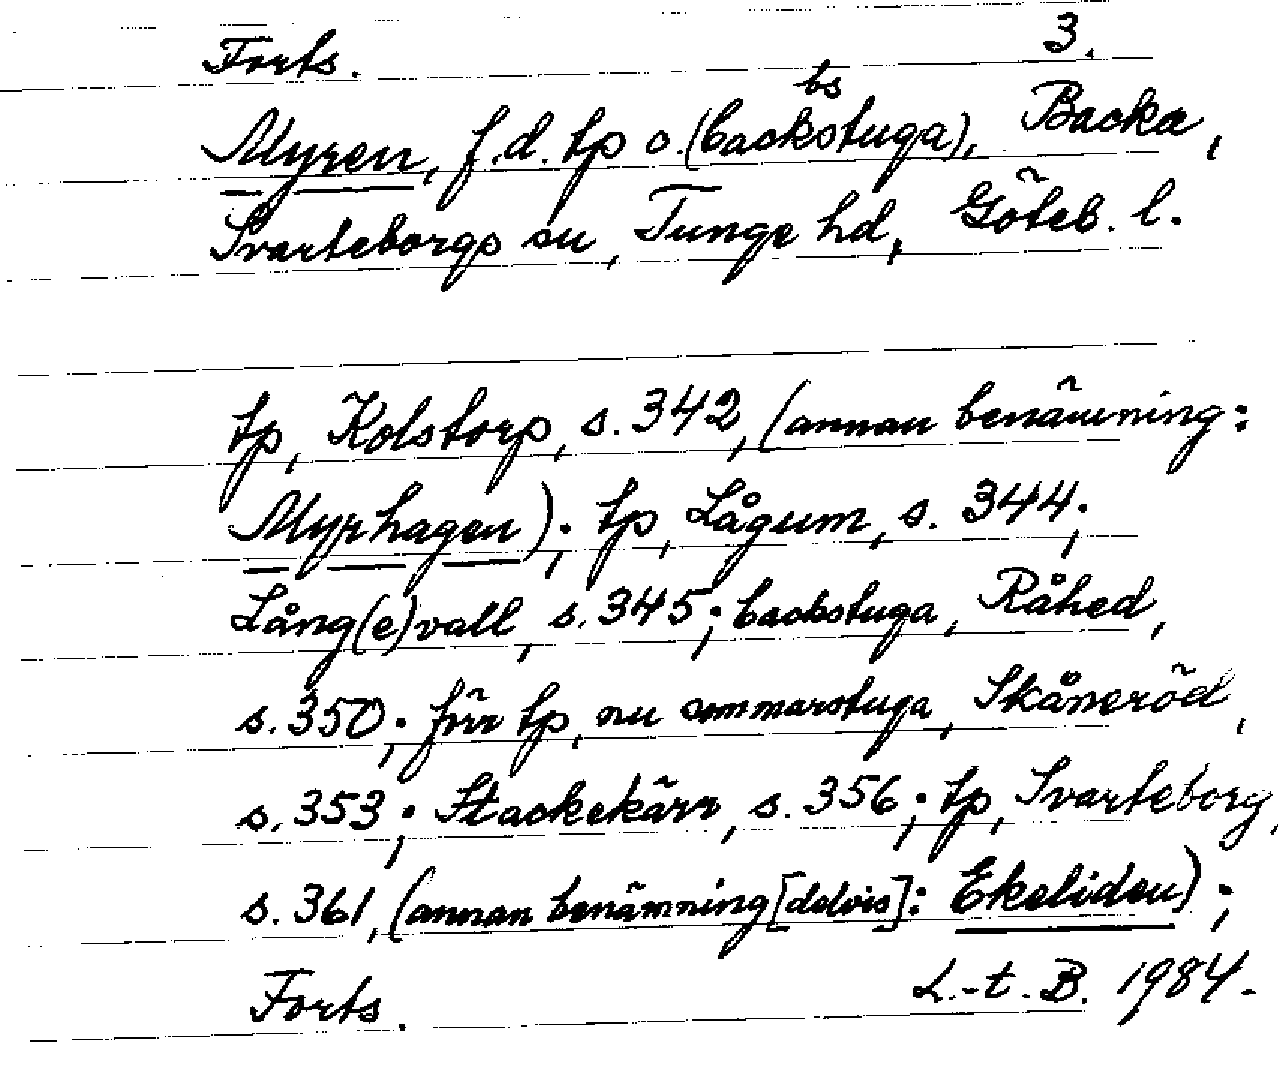 Forts. 3.
bs
Myren, f.d. tp o. (backstuga), Backa,
Svarteborgs sn, Tunge hd, Göteb. l.
tp, Kolstorp, s. 342, (annan benämning:
Myrhagen); tp, Lågum, s. 344;
Lång(e)vall, s. 345; backstuga, Råhed,
s. 350; förr tp, nu sommarstuga, Skåneröd,
s. 353; Stackekärr, s. 356; tp, Svarteborg,
s. 361, (annan benämning [delvis]: Ekeliden);
Forts. L.-t. B. 1984.